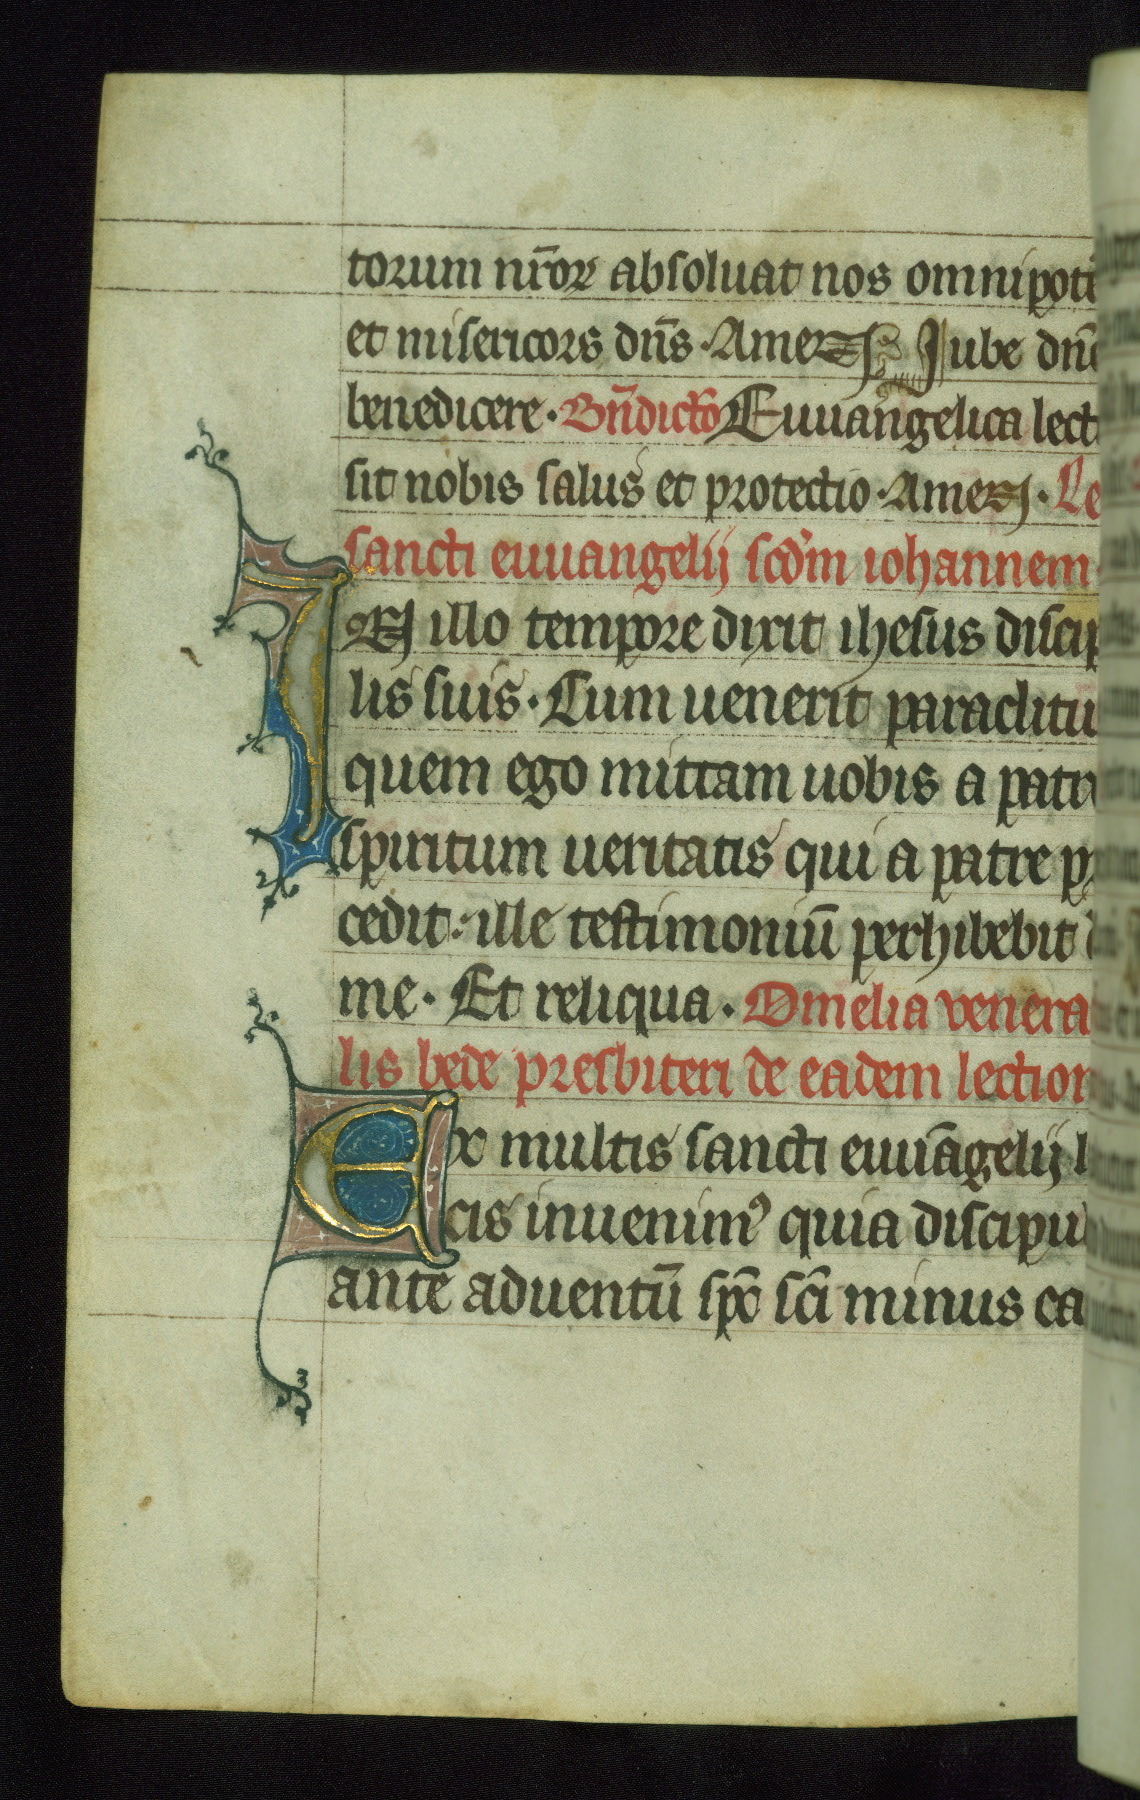 torum nr̄oꝝ absoluat nos omnipot
et misericors dn̄s · Amen Iube dn̄e
benedicere · Bn̄dictō Euuangelica lect
sit nobis salus et protectio · Amen · Le
sancti euuangelij scd̄m iohannem
IN illo tempore dixit ihesus discip
lis suis · Cum uenerit paraclitu
quem ego mittam uobis a patr
spiritum ueritatis qui a patre p
cedit · ille testimoniū perhibebit d
me · Et reliqua · Omelia venera
lis bede presbiteri de eadem lection
Ex multis sancti euuāgelij l
cis inuenimꝰ quia discipu
ante aduentū sp̄c sc̄i minus ca